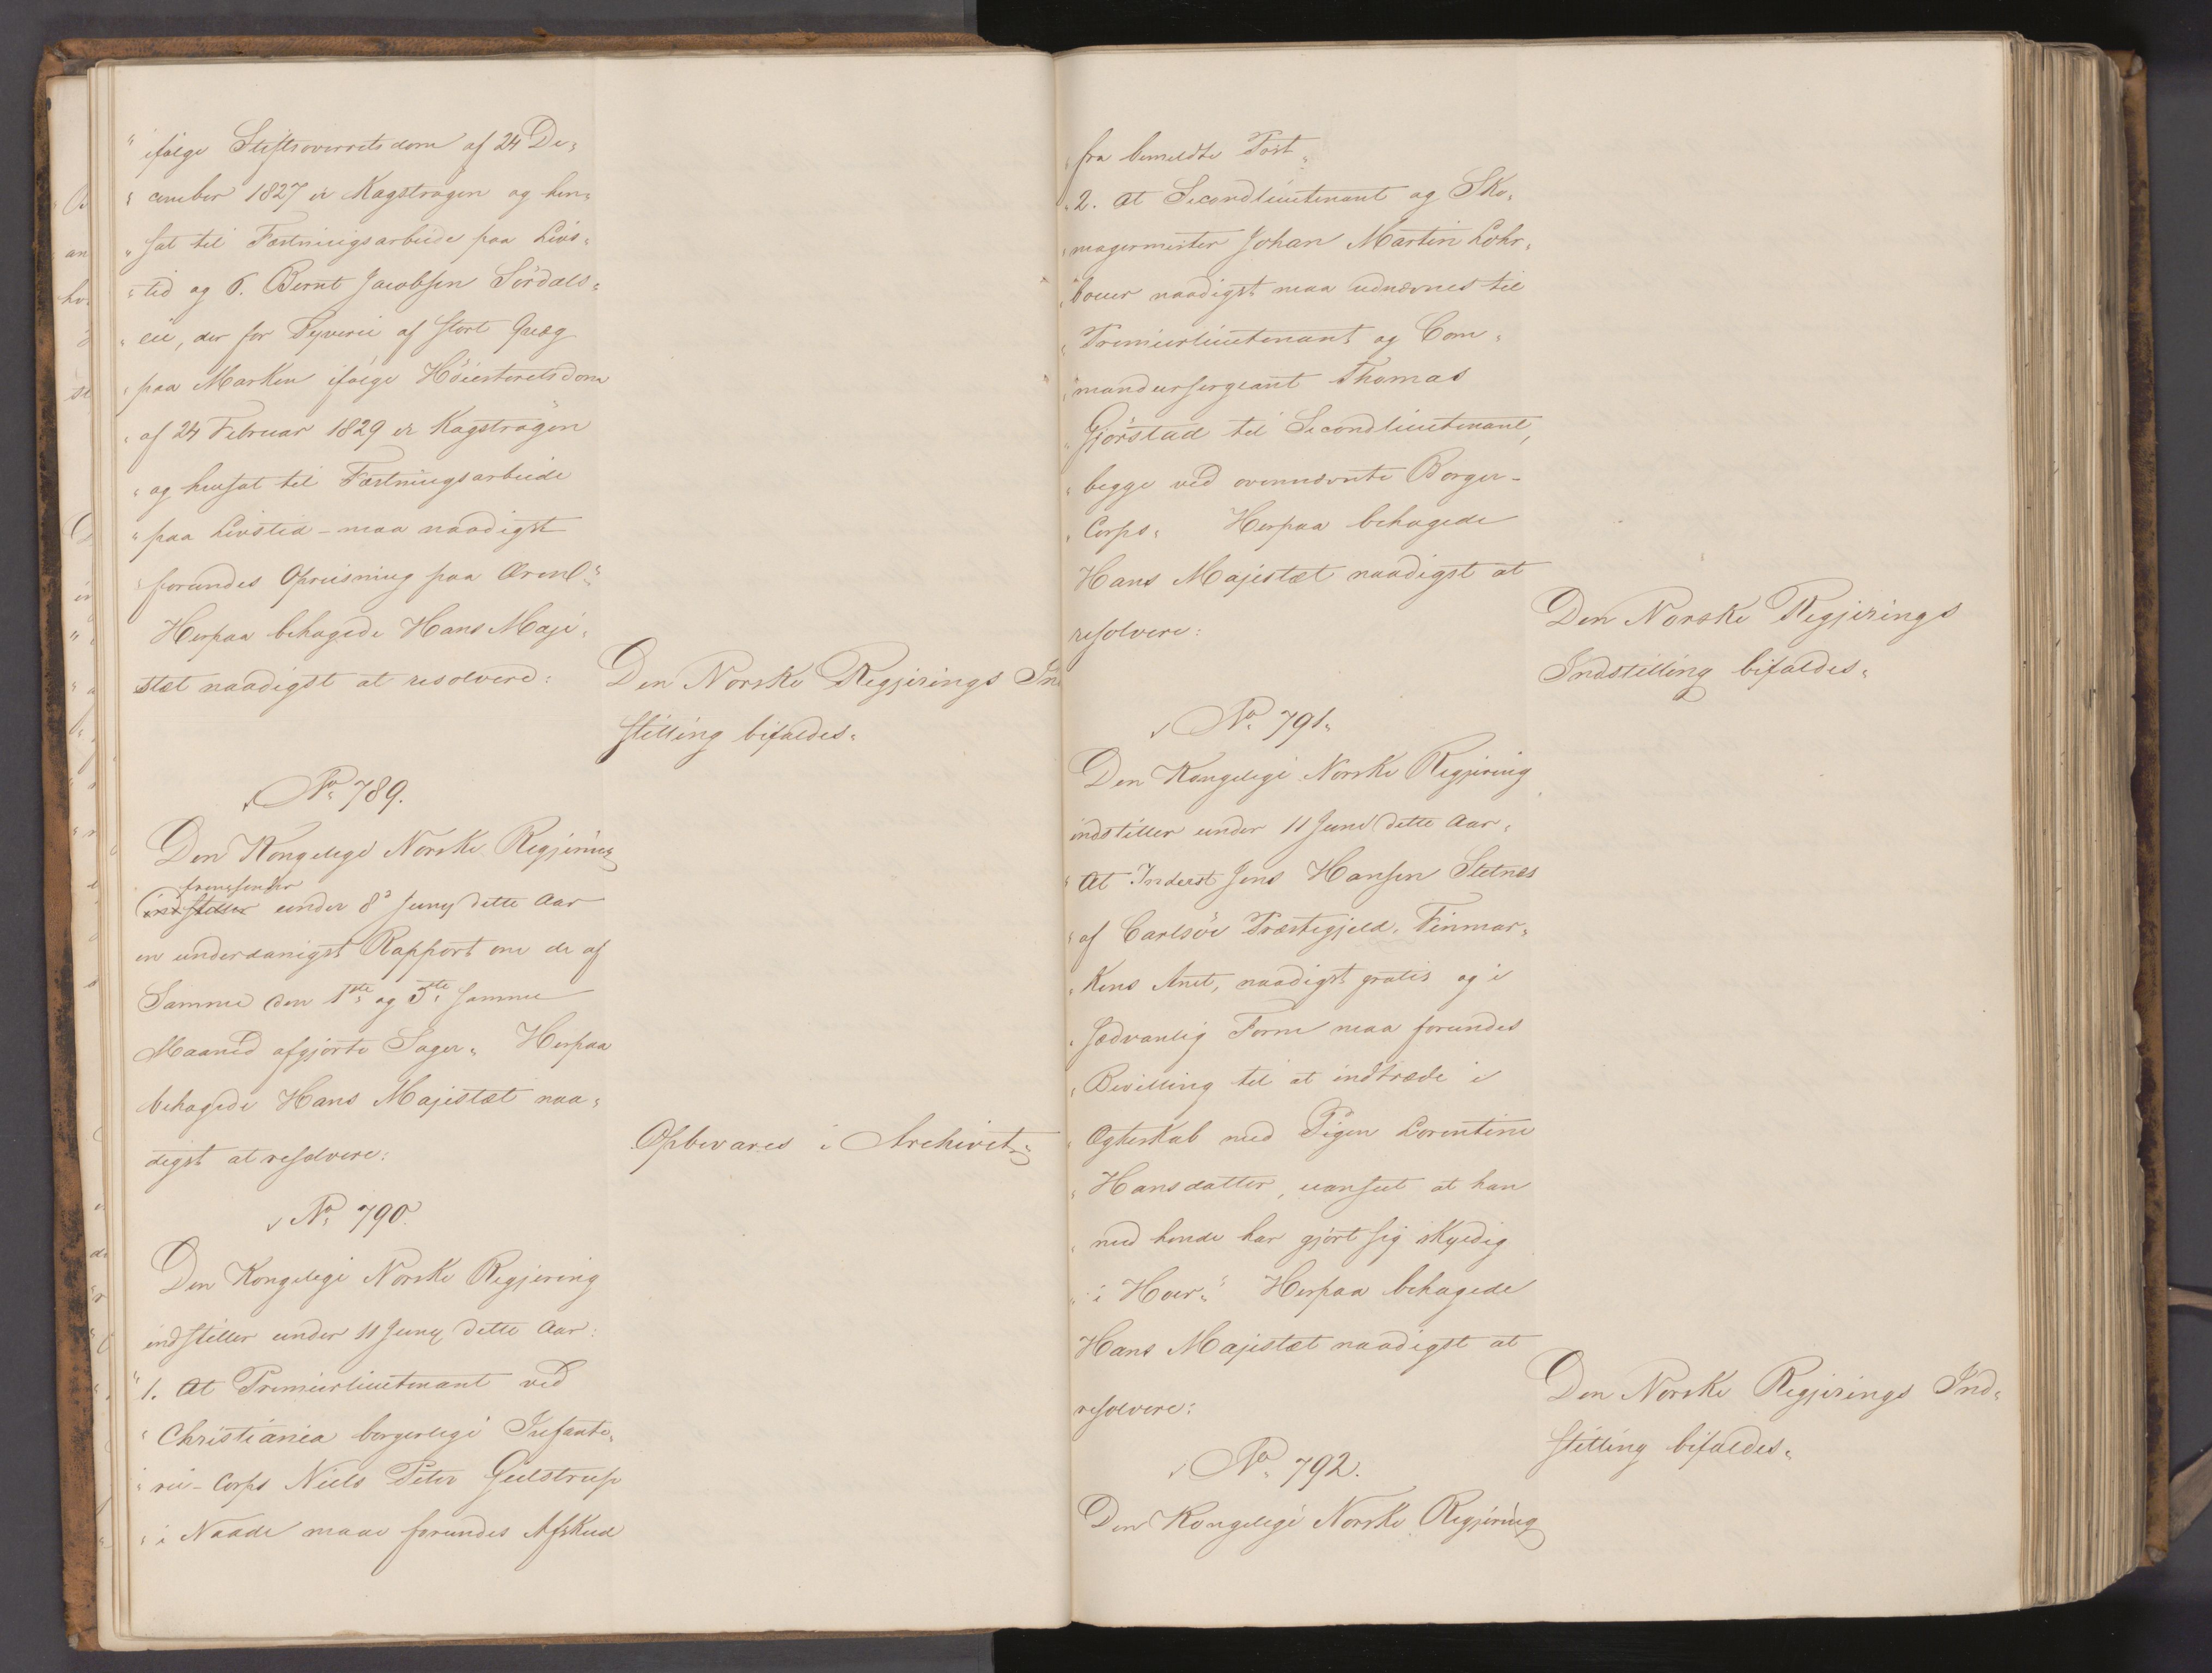 " ifølge Stiftsoverretsdom af 24 De=
" cember 1827 er Kagstrøgen og hen=
" sat til Fæstningsarbeide paa Livs=
" tid og 6. Bernt Jacobsen Sördals=
" eie, der for Tyverie af stort Qvæg
" paa Marken ifølge Höiesteretsdom
" af 24 Februar 1829 er Kagströgen
" og hensat til Fæstningsarbeide
" paa Livstid – maa naadigst
" forundes Opreisning paa Æren."
Herpaa behagede Hans Maje=
stæt naadigst at resolvere:
Den Norske Regjerings In
stilling bifaldes.
No. 789.
Den Kongelige Norske Regjering
fremsender
indstiller under 8de Juny dette Aar
en underdanigst Rapport om de af
Samme den 1ste og 5te samme
Maaned afgjorte Sager. Herpaa
behagede Hans Majestæt naa=
digst at resolvere:
Opbevares i Archivet.
No. 790.
Den Kongelige Norske Regjering
indstiller under 11 Juny dette Aar:
" 1. At Premierlieutenant ved
" Christiania borgerlige Infante=
" rie-Corps Niels Peter Gulstrup
" i Naade maae forundes Afsked
" fra bemeldte Post.
" 2. At Secondlieutenant og Sko=
" magermester Johan Martin Lohr=
" bauer naadigst maa udnævnes til
" Premierlieutenant og Com=
" mandeersergeant Thomas
" Gjörstad til Secondlieutenant,
" begge ved ovennævnte Borger-
" Corps. Herpaa behagede
Hans Majestæt naadigst at
resolvere:
Den Norske Regjerings
Indstilling bifaldes.
No. 791.
Den Kongelige Norske Regjering
indstiller under 11 Juni dette Aar:
" At Inderst Jens Hansen Stetnes
" af Carlsöe Præstegjeld, Finmar=
" kens Amt, naadigst gratis og i
" sædvanlig Form maa forundes
" Bevilling til at indtræde i
" Ægteskab med Pigen Lorentine
" Hansdatter, uanseet at han
" med hende har gjört sig skyldig
" i Hoer." Herpaa behagede
Hans Majestæt naadigst at
resolvere:
Den Norske Regjerings Ind=
stilling bifaldes.
No. 792.
Den Kongelige Norske Regjering